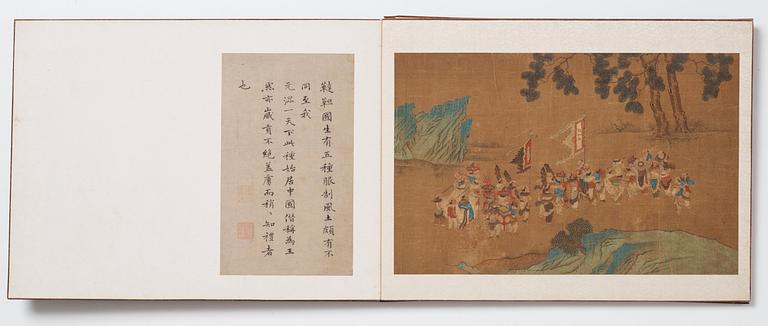 韃靼國生有五種服制風土頗有不
同至我
元混一天下此種始居中國僭稱為王
然亦歲貢不絕蓋虜而稍、知禮者
也